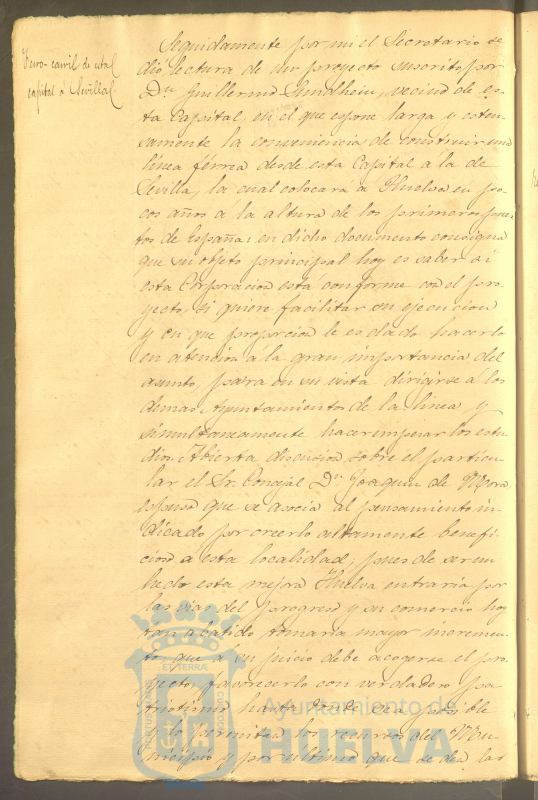 Ferro-carril de esta
capital a Sevilla
Seguidamente por mi el Secretario se
dio lectura de un proyecto suscrito por
Dn Guillermo Sundheim, vecino de es-
ta Capital, en el que espone larga y esten-
samente la conveniencia de construir una
linea férrea desde esta Capital á la de
Sevilla, la cual colocara á Huelva en po-
cos años á la altura de los primeros puer-
tos de España: en dicho documento consigna
que su objeto principal hoy es saber si
esta Corporacion está conforme con el pro-
yecto, si quiere facilitar su ejecucion
y en que proporcion le es dado hacerlo
en atención á la gran importancia del
asunto, para en su vista dirigirse á los
demas Ayuntamientos de la linea y
simultaneamente hacer empezar los estu-
dios. Abierta discusion sobre el particu-
lar el Sr. Concejal Dn Joaquin de Mora
espuso que se asocia al pensamiento in-
dicado por creerlo altamente benefi-
cioso a esta localidad; pues de ser un
hecho esta mejora Huelva entraría por
las vias del progreso y su comercio hoy
tan abatido tomaria mayor incremen-
to que a su juicio debe acogerse el pro-
yecto, favorecerlo con verdadero pa-
triotismo hasta donde sea posible
y lo permitan los recursos del Mu-
nicipio y por ultimo que se den las
PORTUS MARIS
ET TERRÆ
CUSTODIA
Ayuntamiento de
HUELVA